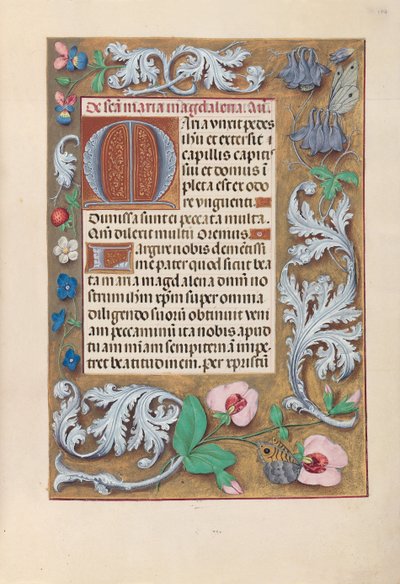 De scā maria magdalena. Añ.
Maria vnxit pedes
ihū et extersit
capillis capitis
sui et domus ī
pleta est ex odo
re vnguenti.
Dimissa sunt ei peccata multa.
Qm̄ dilexit multū Oremus.
Largire nobis clementissi
me pater quod sicut bea
ta maria magdalena dñm nos
trum ihm̄ xpm̄ super omnia
diligendo suorū obtinuit veni
am peccaminū ita nobis apud
tuam mīam sempiternā impe
tret beatitudinem. Per xpm̄